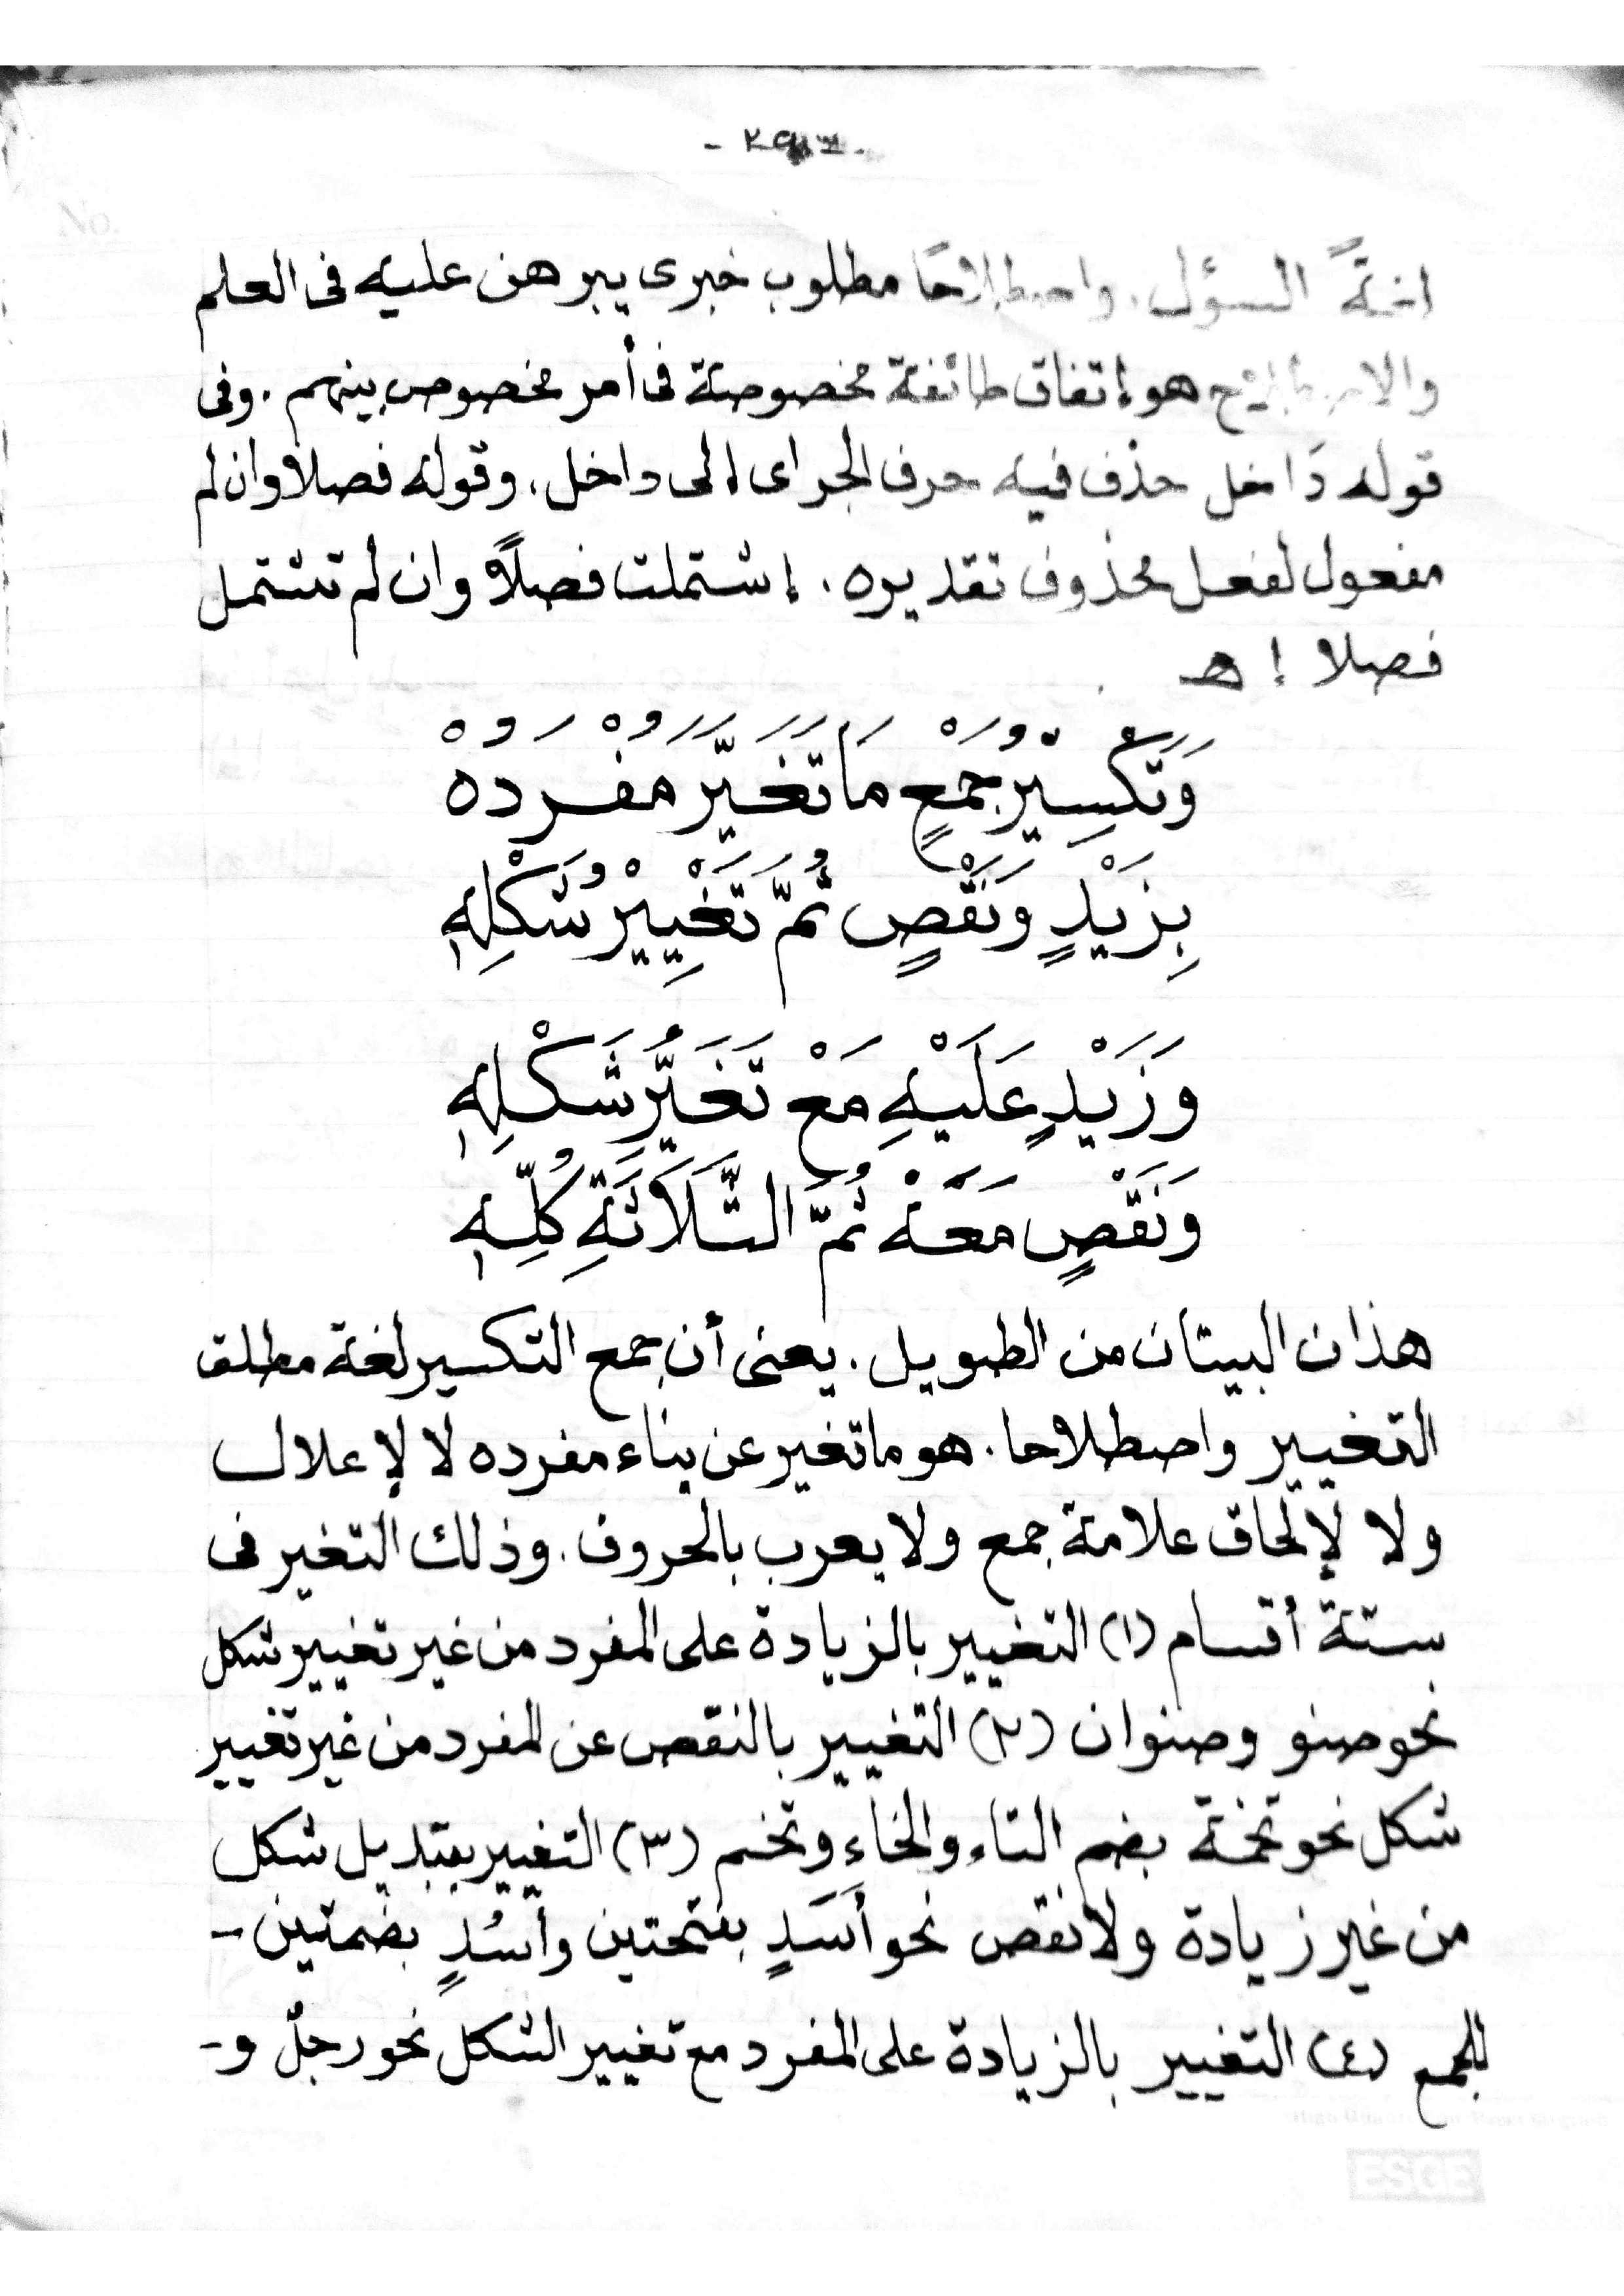 لغةً السؤل. واصطلاحًا مطلوب خبرى يبرهن عليه فى العلم
والاصطلاح هو إتفاق طائفة مخصوصة فى أمر مخصوص بينهم. وفى
قوله دَاخل حذف فيه حرف الجر اى إلى داخل. وقوله فصلا وان لم
مفعول لفعل محذوف تقديره. إشتملت فصلاً وان لم تشتمل
فصلا إ هـ
وَتَكْسِيْرُ جَمْعٍ مَا تَغَيَّرَ مُفْرَدُهْ
بِزَيْدٍ وَنَقْصٍ ثُمَّ تَغْيِيْرُ شَكْلِهِ
وَزَيْدٍ عَلَيْهِ مَعْ تَغَيُّرِ شَكْلِهِ
وَنَقْصٍ مَعَهْ ثُمَّ الثَّلَاثَةِ كُلِّهِ
هذان البيتان من الطويل. يعنى أن جمع التكسير لغة مطلق
التغيير واصطلاحا. هو ماتغير عن بناء مفرده لا لإعلال
ولا لإلحاق علامة جمع ولا يعرب بالحروف. وذلك التغير فى
ستة أقسام (١) التغيير بالزيادة على المفرد من غير تغيير شكل
نحو صنو وصنوان (٢) التغيير بالنقص عن المفرد من غير تغيير
شكل نحو تخمة بضم التاء والخاء وتخم (٣) التغيير بتبديل شكل
من غير زيادة ولا نقص نحو أَسَدٍ بفتحتين وأُسُدٍ بضمتين -
للجمع (٤) التغيير بالزيادة على المفرد مع تغيير الشكل نحو رجلٌ و-
ESGE